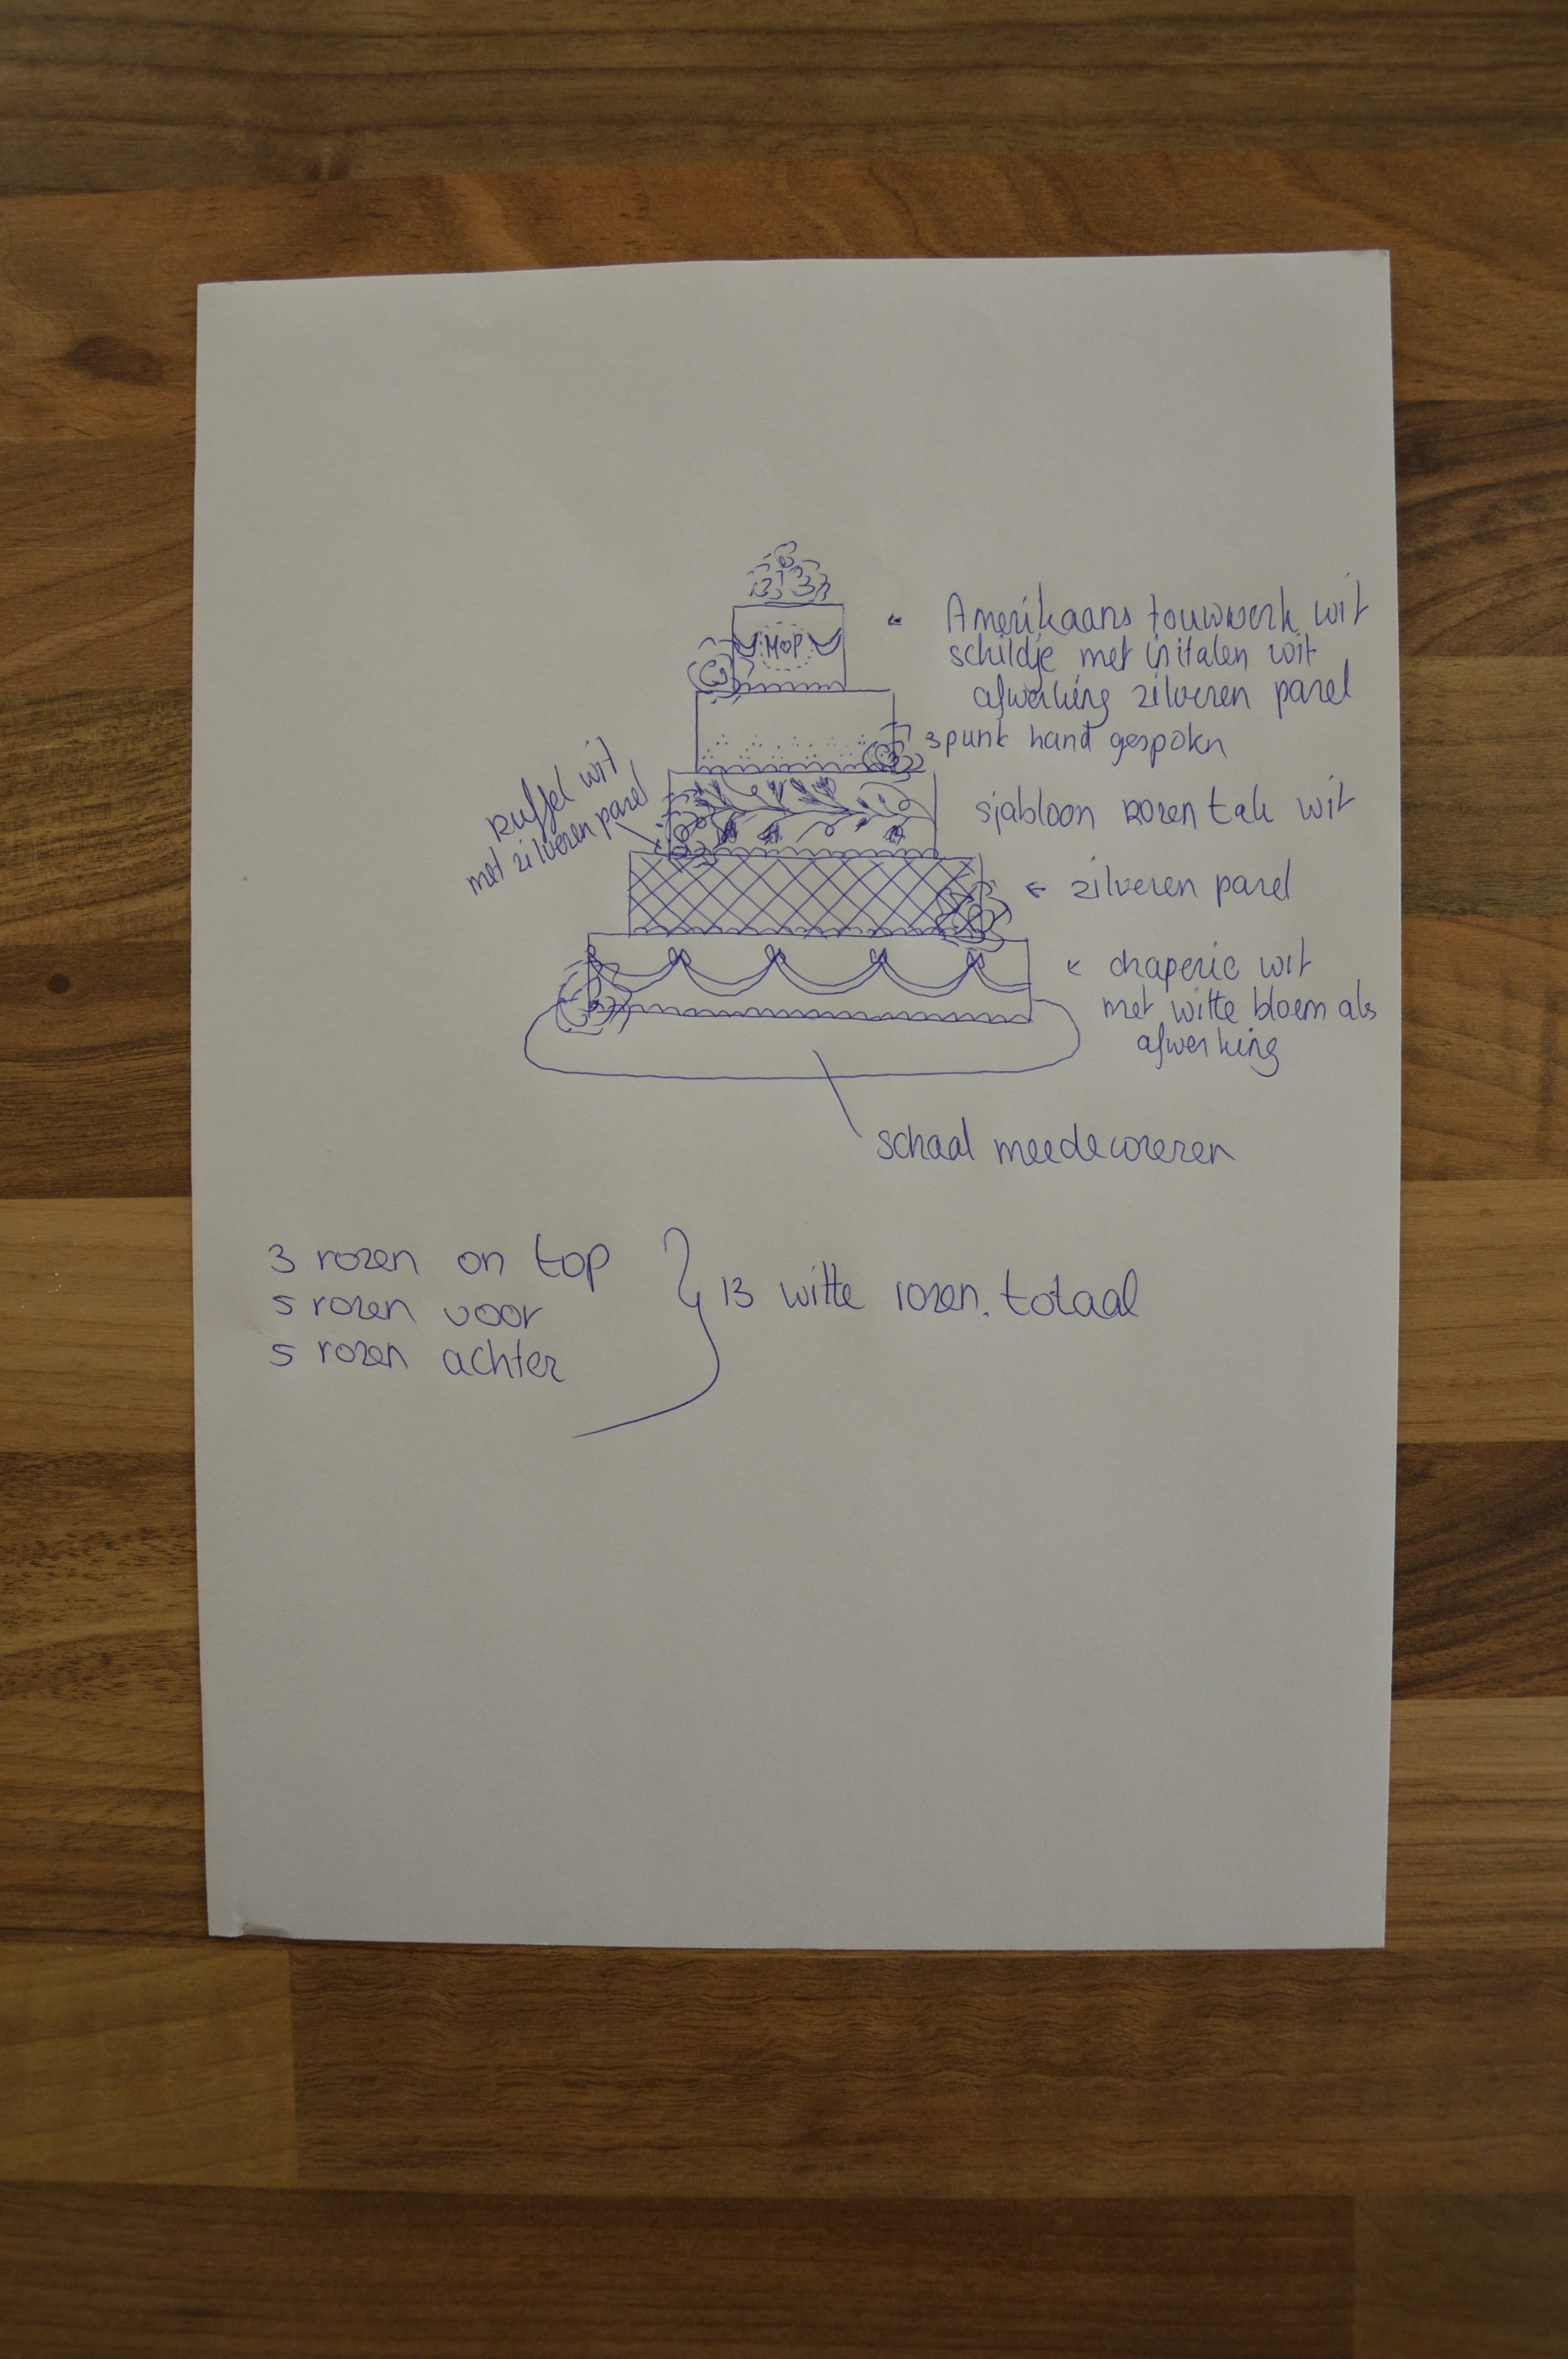 M♡P
Amerikaans touwwerk wit
schildje met initalen wit
afwerking zilveren parel
3 punt hand gespoten
Ruffel wit
met zilveren parel
sjabloon rozen tak wit
zilveren parel
draperie wit
met witte bloem als
afwerking
schaal meedecoreren
3 rozen on top
5 rozen voor
5 rozen achter
13 witte rozen. totaal